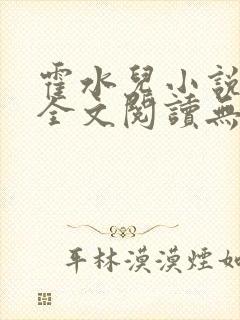 霍水兒小說
全文閱讀無
平林漠漠煙如